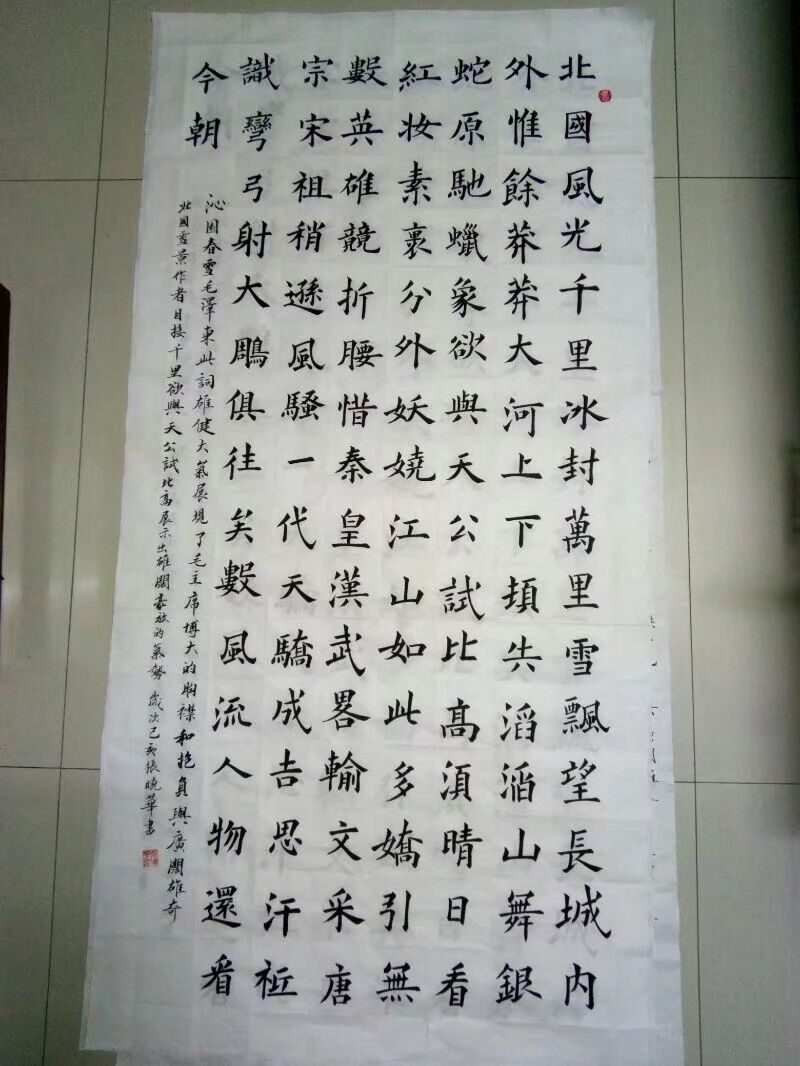 北國風光千里冰封萬里雪飄望長城内
外惟餘莽莽大河上下頓失滔滔山舞銀
蛇原馳蠟象欲與天公試比高須晴日看
紅妆素裹分外妖嬈江山如此多嬌引無
數英雄競折腰惜秦皇漢武畧輸文采唐
宗宋祖稍遜風騷一代天驕成吉思汗祗
識彎弓射大鵰俱往矣數風流人物還看
今朝
沁園春雪毛澤東此詞雄健大氣展現了毛主席博大的胸襟和抱負與廣闊雄奇
北國雪景作者目接千里欲與天公試比高展示出雄闊豪放的氣勢 歲次己亥張曉華書